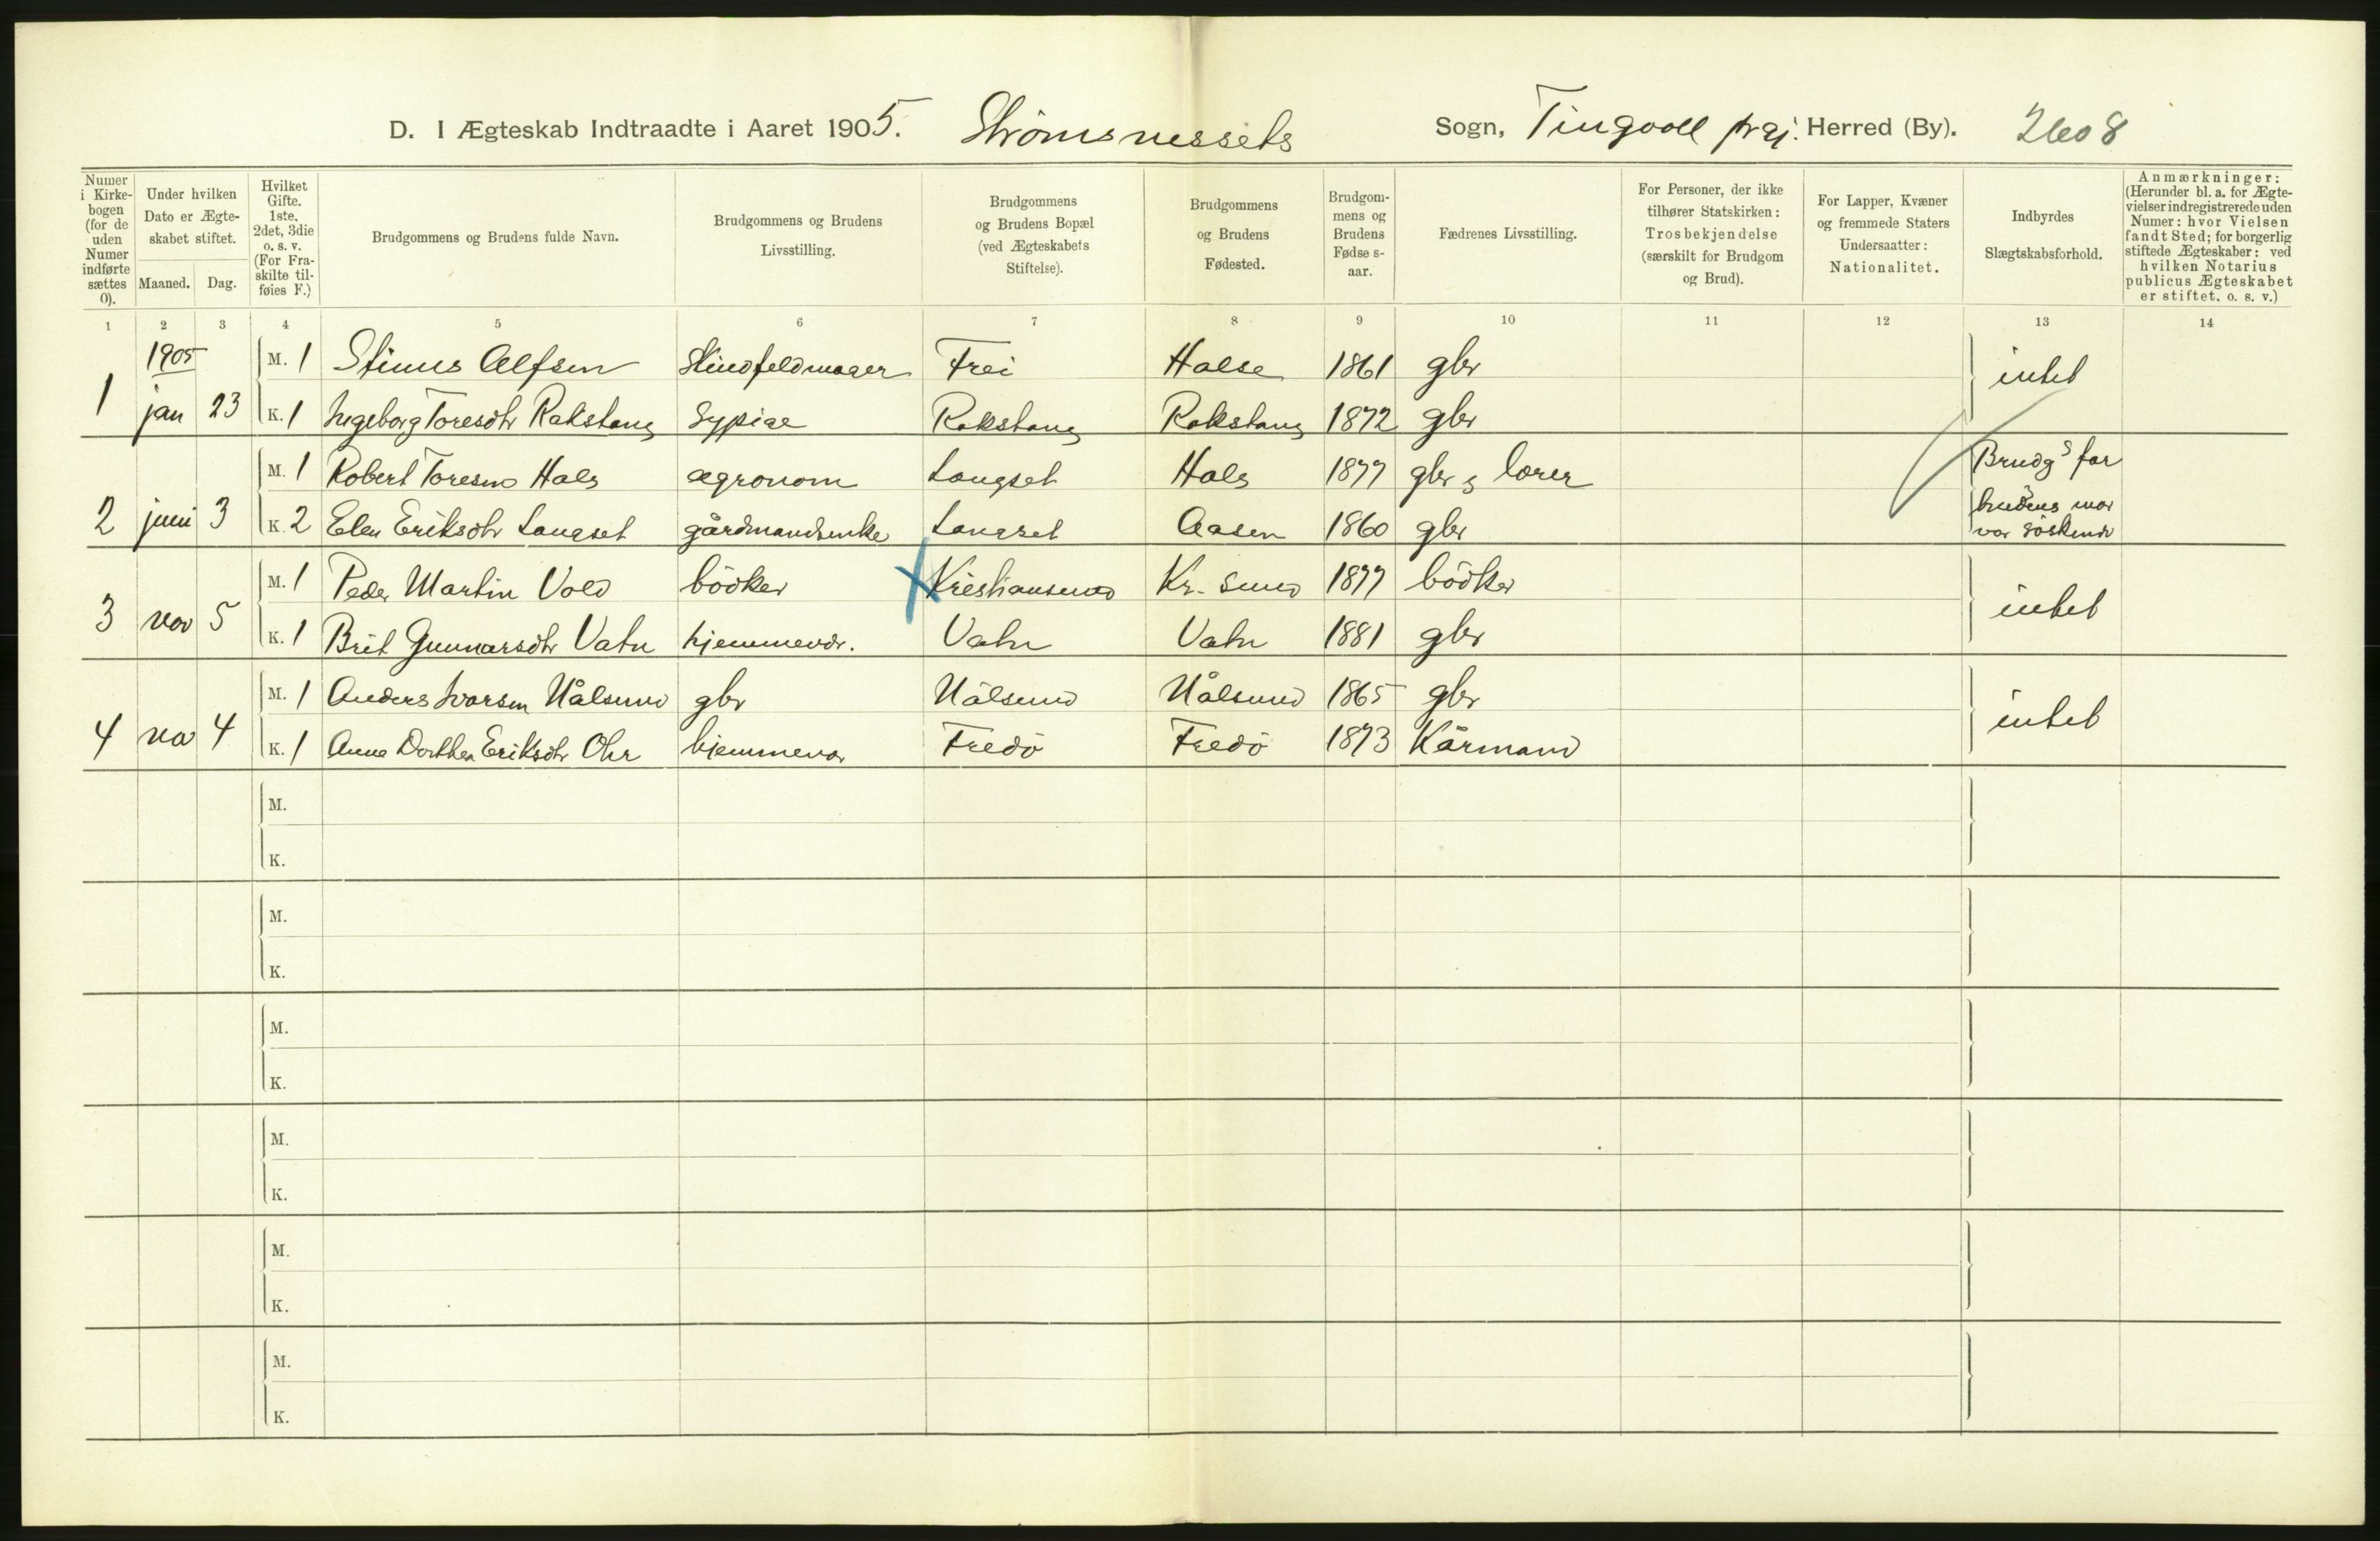 D. I Ægteskab Indtraadte i Aaret 1905. Strömsnessets Sogn, Tingvoll prgj. Herred (By). 2608
Numer i Kirkebogen (for de uden Numer indførte sættes 0).
Under hvilken Dato er Ægteskabet stiftet.
Maaned. Dag.
Hvilket Gifte. 1ste, 2det, 3die o. s. v. (For Fraskilte tilføies F.)
Brudgommens og Brudens fulde Navn.
Brudgommens og Brudens Livsstilling.
Brudgommens og Brudens Bopæl (ved Ægteskabets Stiftelse).
Brudgommens og Brudens Fødested.
Brudgommens og Brudens Fødselsaar.
Fædrenes Livsstilling.
For Personer, der ikke tilhører Statskirken: Trosbekjendelse (særskilt for Brudgom og Brud).
For Lapper, Kvæner og fremmede Staters Undersaatter: Nationalitet.
Indbyrdes Slægtskabsforhold.
Anmærkninger: (Herunder bl. a. for Ægtevielser indregistrerede uden Numer: hvor Vielsen fandt Sted; for borgerlig stiftede Ægteskaber: ved hvilken Notarius publicus Ægteskabet er stiftet, o. s. v.)
1 2 3 4 5 6 7 8 9 10 11 12 13 14
1905
M. 1 Stinus Alfsen Skindfeldmager Frei Halse 1861 gbr intet
1 jan 23 K. 1 Ingeborg Toresdtr Rakstang Sypige Rakstang Rakstang 1872 gbr
M. 1 Robert Toresen Hals agronom Langset Hals 1877 gbr & lærer Brudgs far
2 juni 3 K. 2 Elen Eriksdtr Langset gårdmandsenke Langset Aasen 1860 gbr brudens mor var söskende
M. 1 Peder Martin Vold bödker Kristiansund Kr. sund 1877 bödker
3 nov 5 K. 1 Brit Gunnarsdtr Vatn hjemmevær. Vatn Vatn 1881 gbr intet
M. 1 Anders Ivarsen Nålsund gbr Nålsund Nålsund 1865 gbr
4 nov 4 K. 1 Anne Dorthea Eriksdtr Ohr hjemmevær Fredö Fredö 1873 Kårmand intet
M.
K.
M.
K.
M.
K.
M.
K.
M.
K.
M.
K.